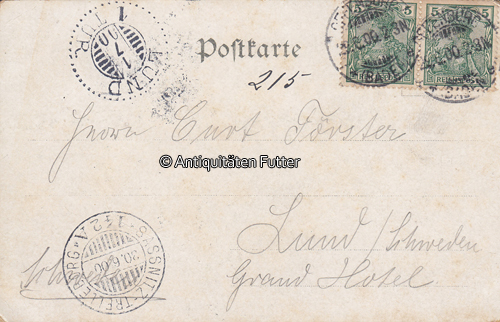 Postkarte
215
Herrn Curt Förster
© Antiquitäten Futter
Lund / Schweden
Grand Hotel
LUND
1 7 00
TUR
1
SASSNITZ-TRELLEBORG
1+2 A
20.6.00
5 5
(BADEN)